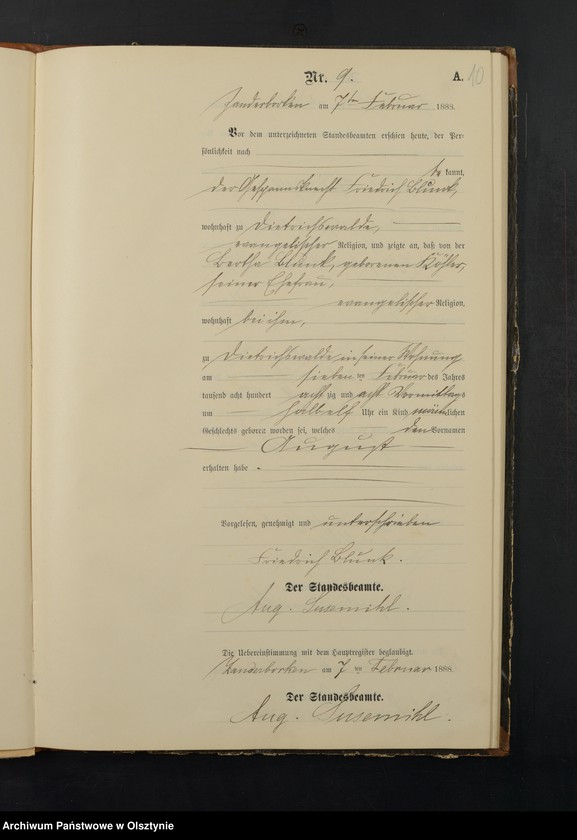 Nr. 9.
A. 10
Zanderborken am 7ten Februar 1888.
Vor dem unterzeichneten Standesbeamten erschien heute, der Per-
sönlichkeit nach
be kannt,
der Gespannknecht Friedrich Blunk,
wohnhaft zu Dietrichswalde,
evangelischer Religion, und zeigte an, daß von der
Bertha Blunk, geborenen Köhler,
seiner Ehefrau,
evangelischer Religion,
wohnhaft bei ihm,
zu Dietrichswalde in seiner Wohnung
am sieben ten Februar des Jahres
tausend acht hundert acht zig und acht Vormittags
um halb elf Uhr ein Kind männlichen
Geschlechts geboren worden sei, welches den Vornamen
August
erhalten habe.
Vorgelesen, genehmigt und unterschrieben
Friedrich Blunk.
Der Standesbeamte.
Aug. Susemihl.
Die Uebereinstimmung mit dem Hauptregister beglaubigt.
Zanderborken am 7 ten Februar 1888
Der Standesbeamte.
Aug. Susemihl.
Archiwum Państwowe w Olsztynie